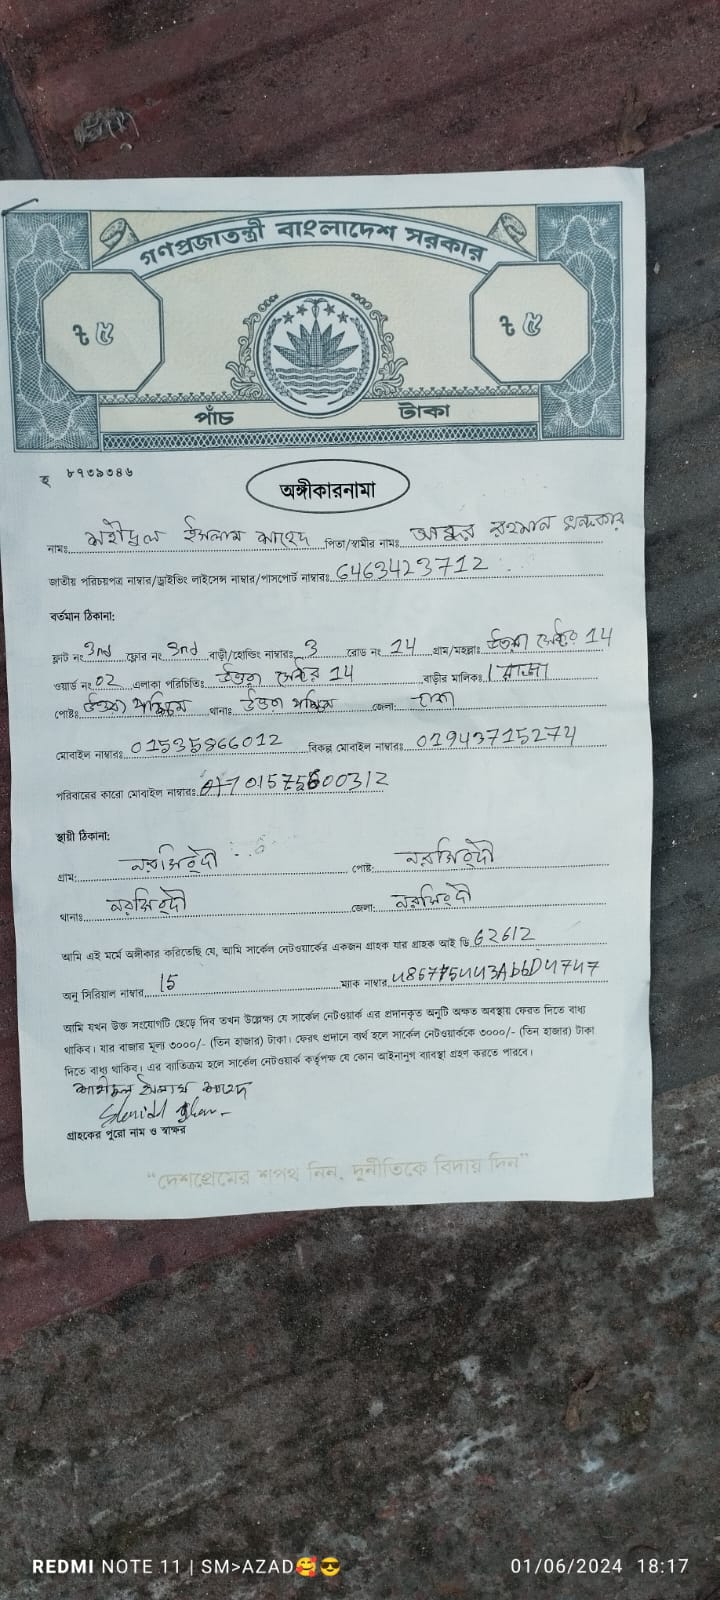 গণপ্রজাতন্ত্রী বাংলাদেশ সরকার
৳ ৫ ৳ ৫
পাঁচ টাকা
হ ৮৭৩৯৩৪৬
অঙ্গীকারনামা
নামঃ ইসলাম জাহেদ পিতা/স্বামীর নামঃ রহমান খন্দকার
জাতীয় পরিচয়পত্র নাম্বার/ড্রাইভিং লাইসেন্স নাম্বার/পাসপোর্ট নাম্বারঃ 6463423712
বর্তমান ঠিকানা:
ফ্লাট নং 3nd ফ্লোর নং 3nd বাড়ী/হোল্ডিং নাম্বারঃ 3 রোড নং 14 গ্রাম/মহল্লাঃ উত্তরা সেক্টর 14
ওয়ার্ড নং 02 এলাকা পরিচিতিঃ উত্তরা সেক্টর 14 বাড়ীর মালিকঃ রাজা
পোষ্টঃ উত্তরা পশ্চিম থানাঃ উত্তরা পশ্চিম জেলা: ঢাকা
মোবাইল নাম্বারঃ 01535866012 বিকল্প মোবাইল নাম্বারঃ 01943715274
পরিবারের কারো মোবাইল নাম্বারঃ
স্থায়ী ঠিকানা:
গ্রাম: নরসিংদী পোষ্ট: নরসিংদী
থানাঃ নরসিংদী জেলা: নরসিংদী
আমি এই মর্মে অঙ্গীকার করিতেছি যে, আমি সার্কেল নেটওয়ার্কের একজন গ্রাহক যার গ্রাহক আই ডি 62612
অনু সিরিয়াল নাম্বার 15 ম্যাক নাম্বার
আমি যখন উক্ত সংযোগটি ছেড়ে দিব তখন উল্লেখ্য যে সার্কেল নেটওয়ার্ক এর প্রদানকৃত অনুটি অক্ষত অবস্থায় ফেরত দিতে বাধ্য
থাকিব। যার বাজার মূল্য ৩০০০/- (তিন হাজার) টাকা। ফেরৎ প্রদানে ব্যর্থ হলে সার্কেল নেটওয়ার্ককে ৩০০০/- (তিন হাজার) টাকা
দিতে বাধ্য থাকিব। এর ব্যতিক্রম হলে সার্কেল নেটওয়ার্ক কর্তৃপক্ষ যে কোন আইনানুগ ব্যবস্থা গ্রহণ করতে পারবে।
গ্রাহকের পুরো নাম ও স্বাক্ষর
“দেশপ্রেমের শপথ নিন, দুর্নীতিকে বিদায় দিন”
REDMI NOTE 11 | SM>AZAD🥰😎 01/06/2024 18:17